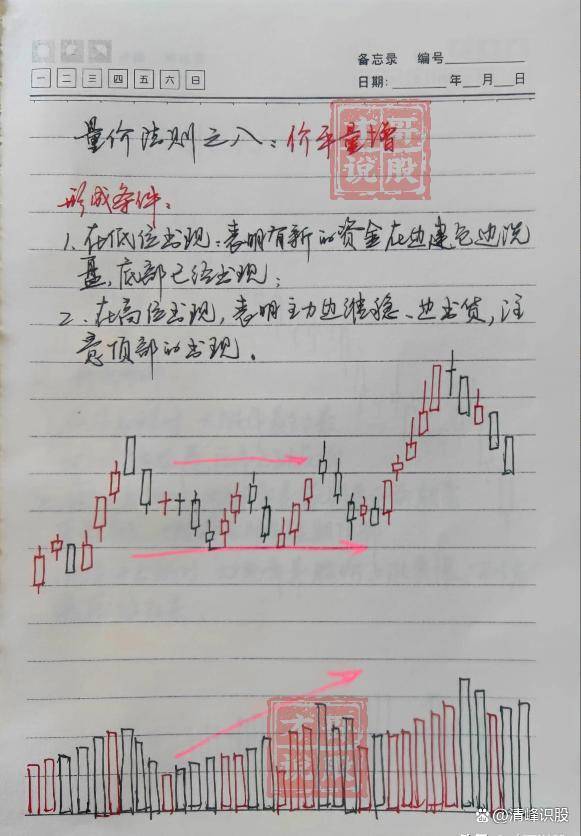 备忘录 编号
一 二 三 四 五 六 日
日期: 年 月 日
量价法则之八：价平量增
形成条件：
1、在低位出现：表明有新的资金在边建仓边洗
盘，底部已经出现；
2、在高位出现，表明主力边维稳、边出货，注
意顶部的出现。
说股
@清峰识股